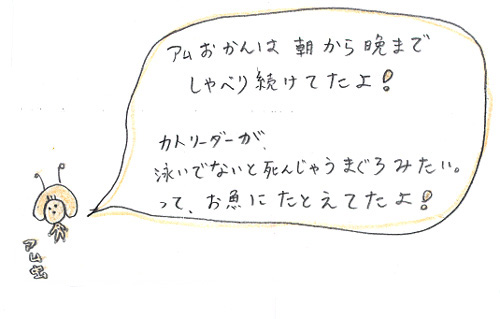 アムおかんは 朝から晩まで
しゃべり続けてたよ!
カトリーダーが、
泳いでないと死んじゃうまぐろみたい。
って、お魚にたとえてたよ!
アム虫